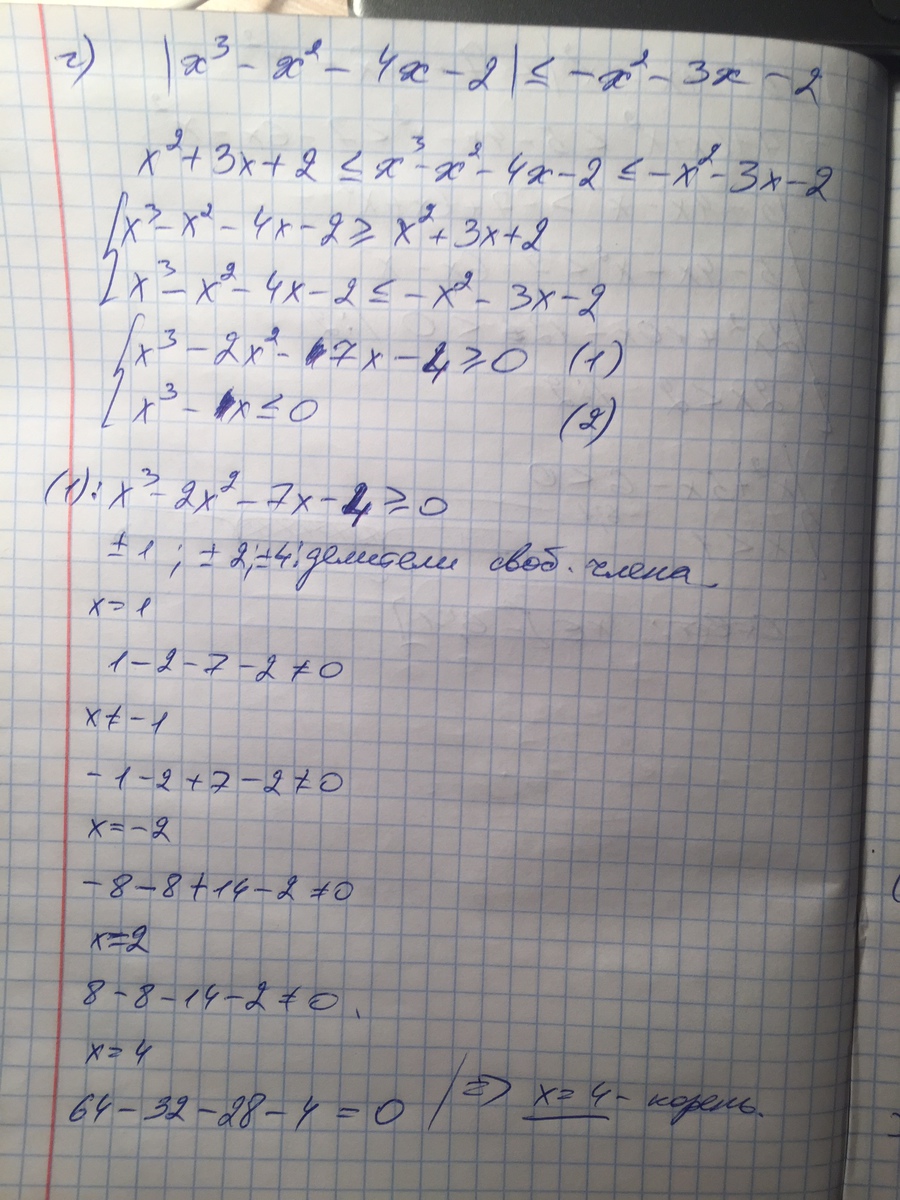 г) |x³ - x² - 4x - 2| ≤ -x² - 3x - 2
x² + 3x + 2 ≤ x³ - x² - 4x - 2 ≤ -x² - 3x - 2
{ x³ - x² - 4x - 2 ≥ x² + 3x + 2
x³ - x² - 4x - 2 ≤ -x² - 3x - 2
{ x³ - 2x² - 7x - 4 ≥ 0 (1)
x³ - x ≤ 0 (2)
(1): x³ - 2x² - 7x - 4 ≥ 0
±1 ; ± 2; ±4: делители своб. члена
x = 1
1 - 2 - 7 - 2 ≠ 0
x ≠ -1
-1 - 2 + 7 - 2 ≠ 0
x = -2
-8 - 8 + 14 - 2 ≠ 0
x = 2
8 - 8 - 14 - 2 ≠ 0.
x = 4
64 - 32 - 28 - 4 = 0 / ⇒ x = 4 - корень.